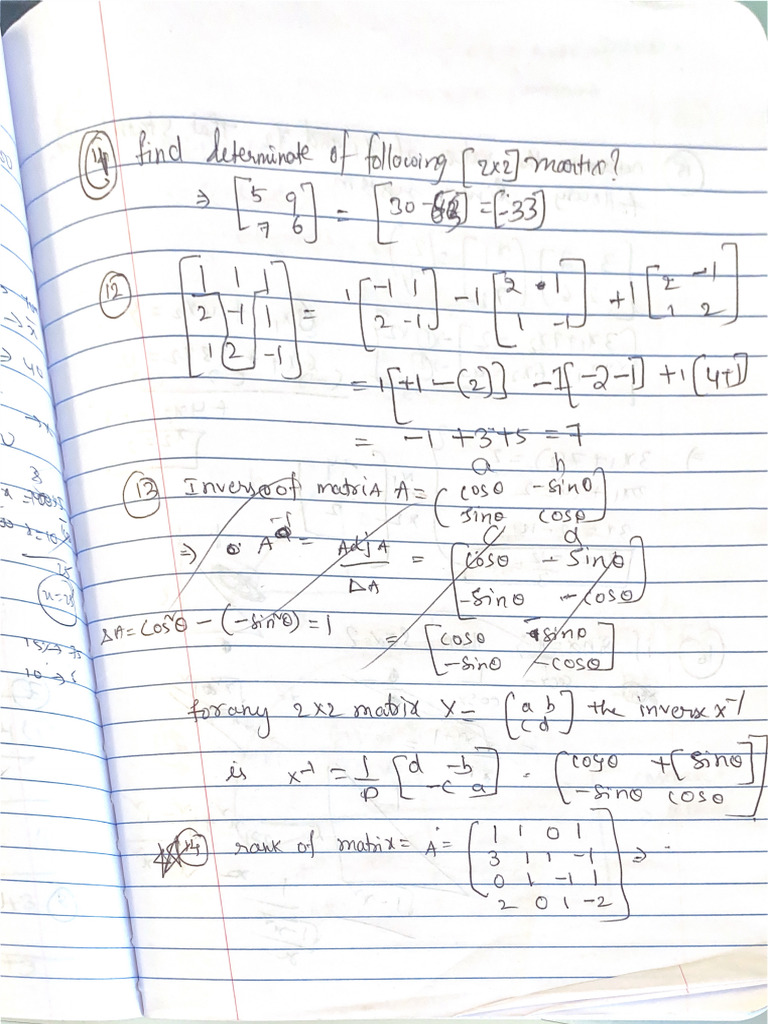 find determinate of following [2x2] maatrix?
⇒ [5 9 = [30 - 63] = [-33]
7 6]
(12) [1 1 1 = 1[-1 1 -1[2 1 +1[2 -1
2 -1 1 2 -1] 1 -1] 1 2]
1 2 -1]
= 1[+1 - (2)] -1[-2-1] +1(4+1)
= -1 +3+5 = 7
a b
(13) Inverse of matrix A = [cosθ -sinθ
sinθ cosθ]
c d
⇒ A⁻¹ = AdjA = [cosθ - sinθ
ΔA -sinθ - cosθ]
ΔA = cos²θ - (-sin²θ) = 1
= [cosθ sinθ
-sinθ -cosθ]
for any 2x2 matrix X = [a b the inverse x⁻¹
c d]
is x⁻¹ = 1 [d -b = [cosθ +[sinθ]
D -c a] -sinθ cosθ]
(14) rank of matrix = A = [1 1 0 1 ⇒
3 1 1 -1
0 1 -1 1
2 0 1 -2]
3
28
x=28
15→
10→5
⇒ 40